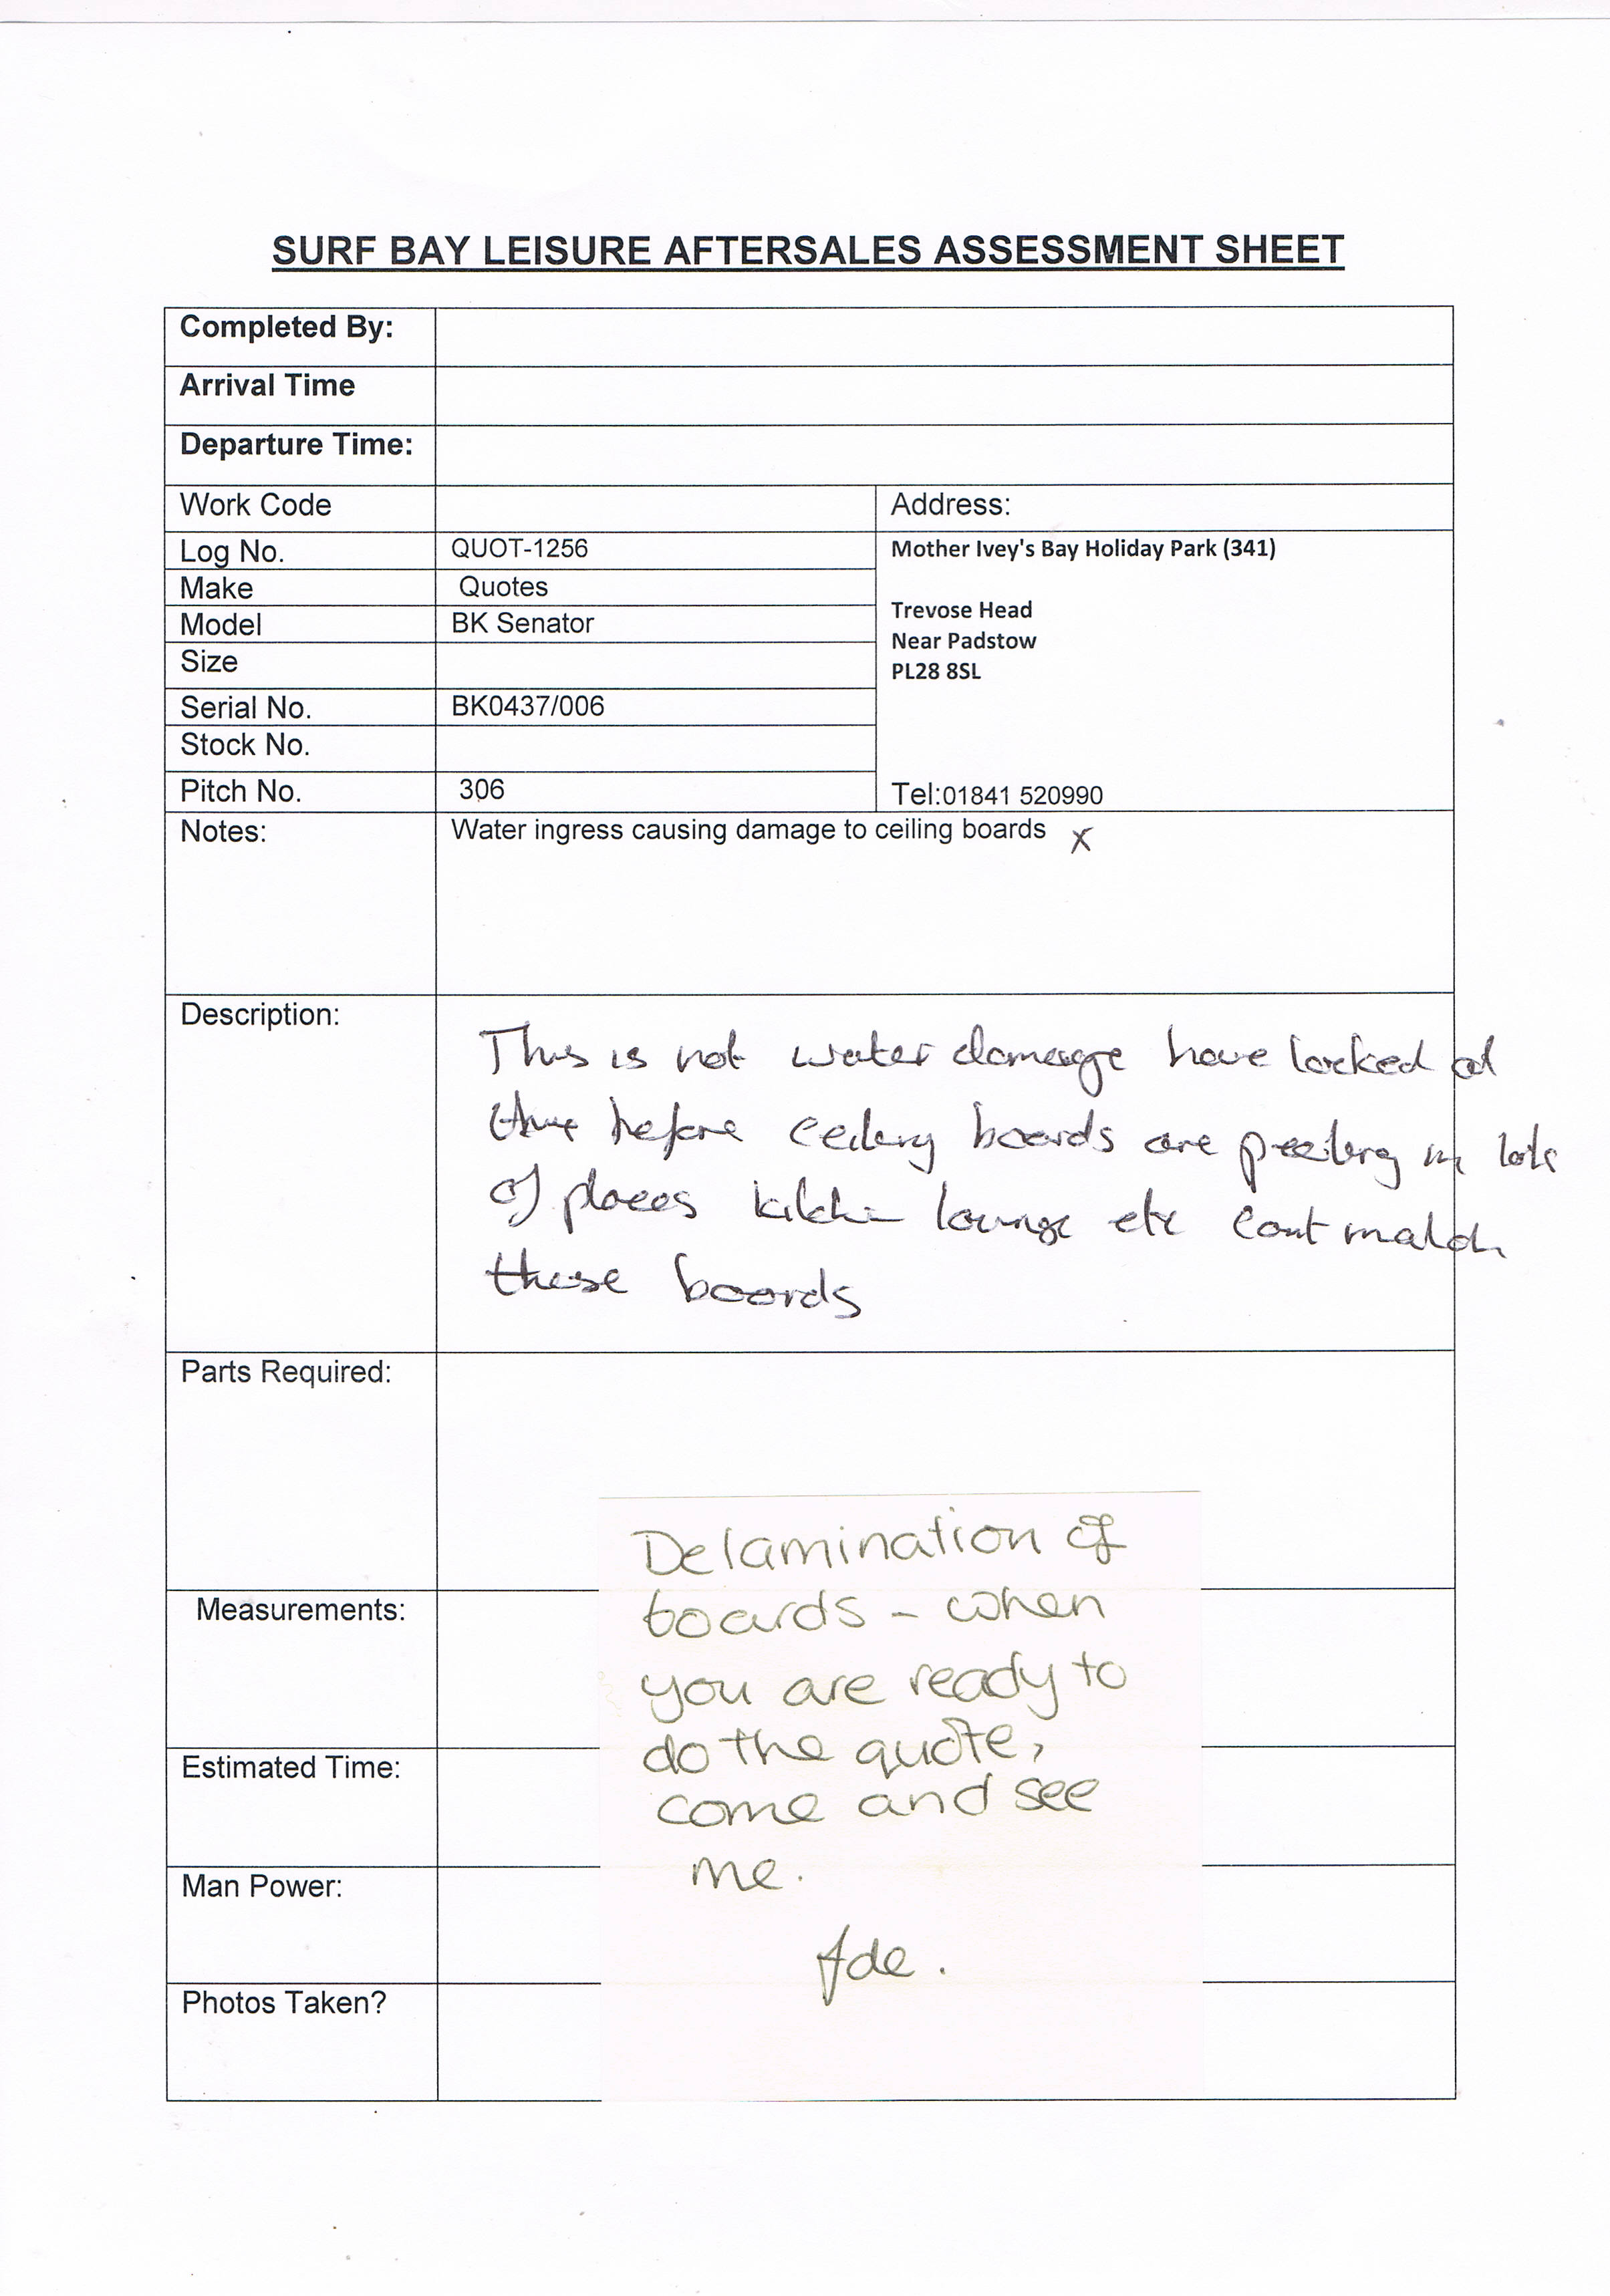 SURF BAY LEISURE AFTERSALES ASSESSMENT SHEET
Completed By:
Arrival Time
Departure Time:
Work Code
Address:
Log No. QUOT-1256
Mother Ivey's Bay Holiday Park (341)
Make Quotes
Trevose Head
Model BK Senator
Near Padstow
Size
PL28 8SL
Serial No. BK0437/006
Stock No.
Pitch No. 306
Tel:01841 520990
Notes: Water ingress causing damage to ceiling boards x
Description:
This is not water damage have looked at
this before ceiling boards are peeling in lots
of places kitchen lounge etc cont match
these boards
Parts Required:
Delamination of
boards - when
Measurements:
you are ready to
do the quote,
Estimated Time:
come and see
me.
Man Power:
Photos Taken?